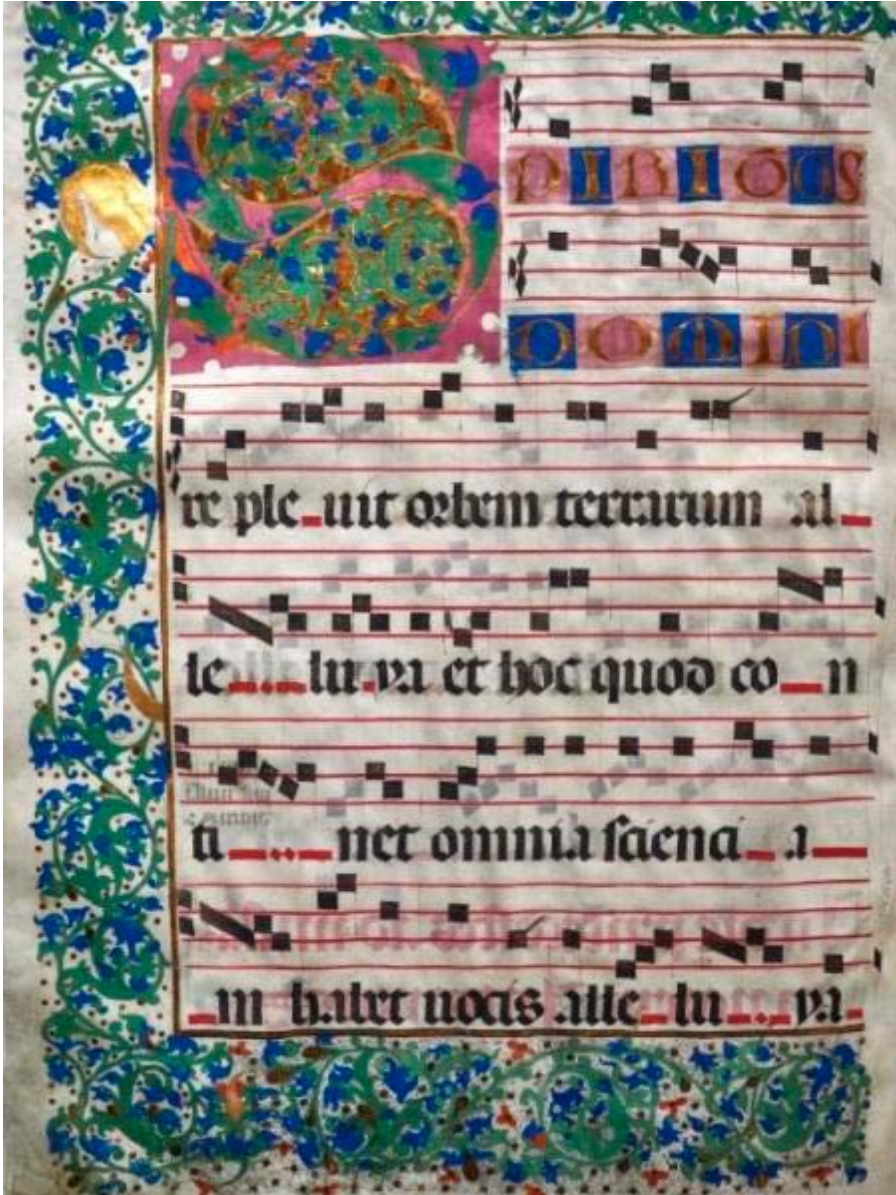 SPIRITUS
DOMINI
re ple uit orbem terrarum al
le lu ya et hoc quod co n
ti net omnia scienci a
m habet uocis alle lu ya